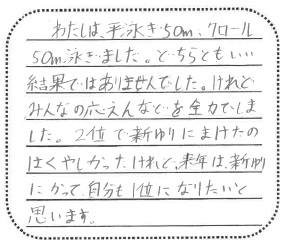 わたしは、平泳ぎ50m、クロール
50m泳ぎました。どちらともいい
結果ではありませんでした。けれど
みんなの応えんなどを全力でしま
した。2位で新ゆりにまけたの
はくやしかったけれど、来年は、新ゆり
にかって、自分も1位になりたいと
思います。